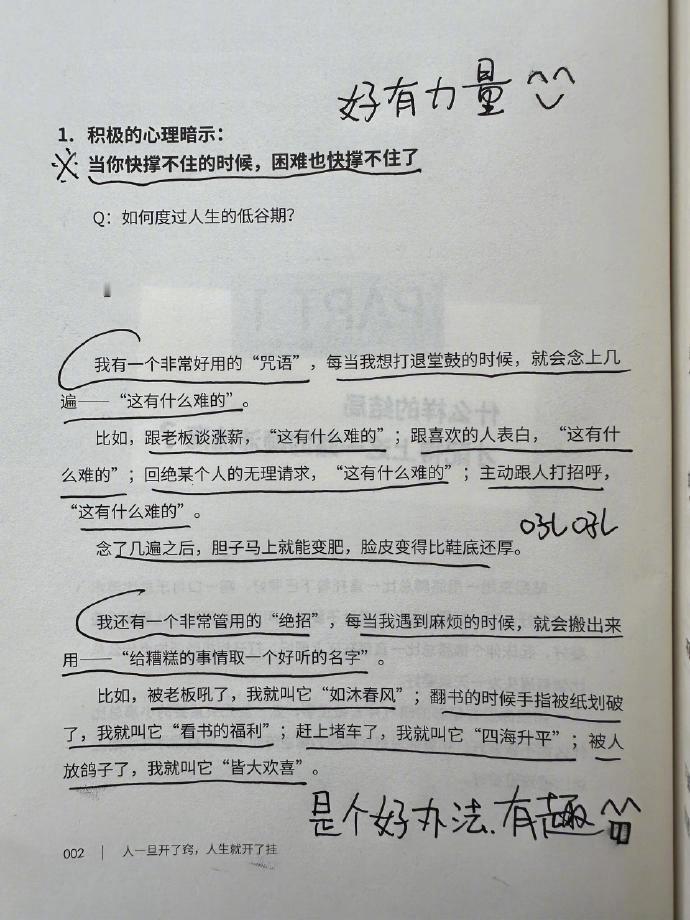 好有力量
1. 积极的心理暗示：
当你快撑不住的时候，困难也快撑不住了
Q：如何度过人生的低谷期？
我有一个非常好用的“咒语”，每当我想打退堂鼓的时候，就会念上几
遍——“这有什么难的”。
比如，跟老板谈涨薪，“这有什么难的”；跟喜欢的人表白，“这有什
么难的”；回绝某个人的无理请求，“这有什么难的”；主动跟人打招呼，
“这有什么难的”。
哈哈
念了几遍之后，胆子马上就能变肥，脸皮变得比鞋底还厚。
我还有一个非常管用的“绝招”，每当我遇到麻烦的时候，就会搬出来
用——“给糟糕的事情取一个好听的名字”。
比如，被老板吼了，我就叫它“如沐春风”；翻书的时候手指被纸划破
了，我就叫它“看书的福利”；赶上堵车了，我就叫它“四海升平”；被人
放鸽子了，我就叫它“皆大欢喜”。
是个好办法、有趣
002 | 人一旦开了窍，人生就开了挂